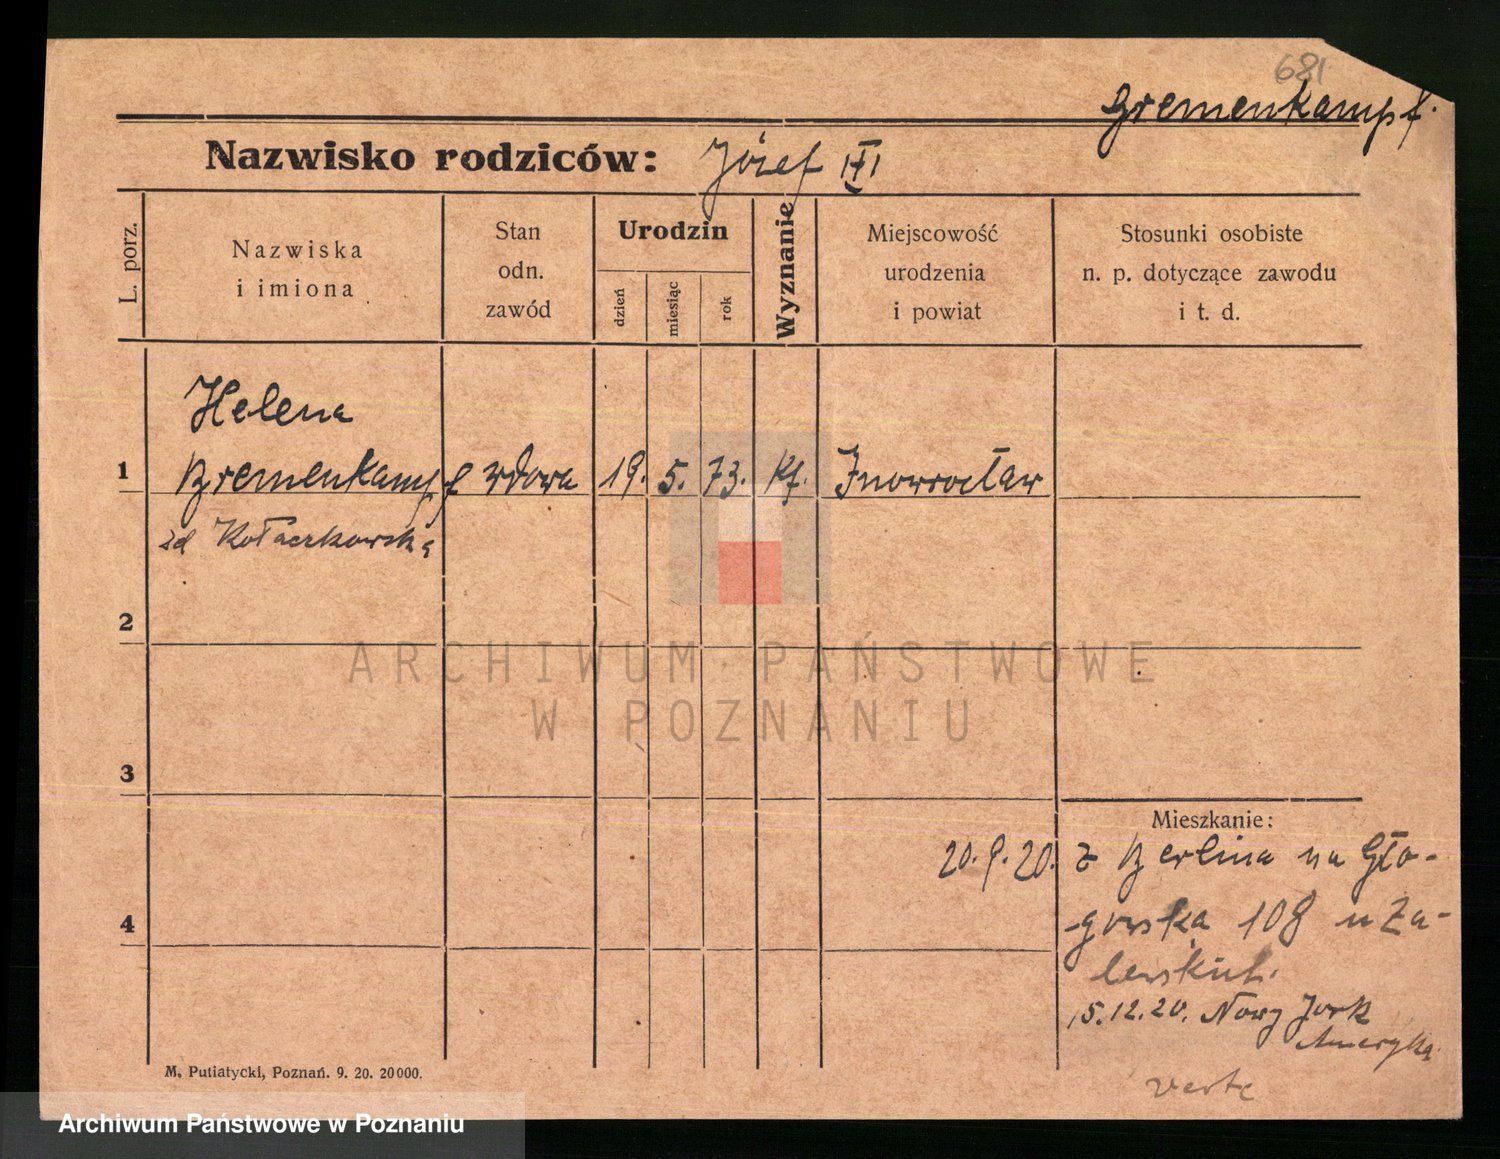 681
Bremenkampf.
Nazwisko rodziców: Józef
L. porz.
Nazwiska
i imiona
Stan
odn.
zawód
Urodzin
dzień
miesiąc
rok
Wyznanie
Miejscowość
urodzenia
i powiat
Stosunki osobiste
n. p. dotyczące zawodu
i t. d.
Helena
1 Bremenkampf wdowa 19. 5. 73. Kf. Inowrocław
zd Kołaczkowska
2
ARCHIWUM PAŃSTWOWE
W POZNANIU
3
Mieszkanie:
20.9.20. z Berlina na Gło-
4
gowska 108 u Za-
lewskich.
15.12.20. Nowy Jork
Ameryka
verte
M. Putiatycki, Poznań. 9. 20. 20000.
Archiwum Państwowe w Poznaniu